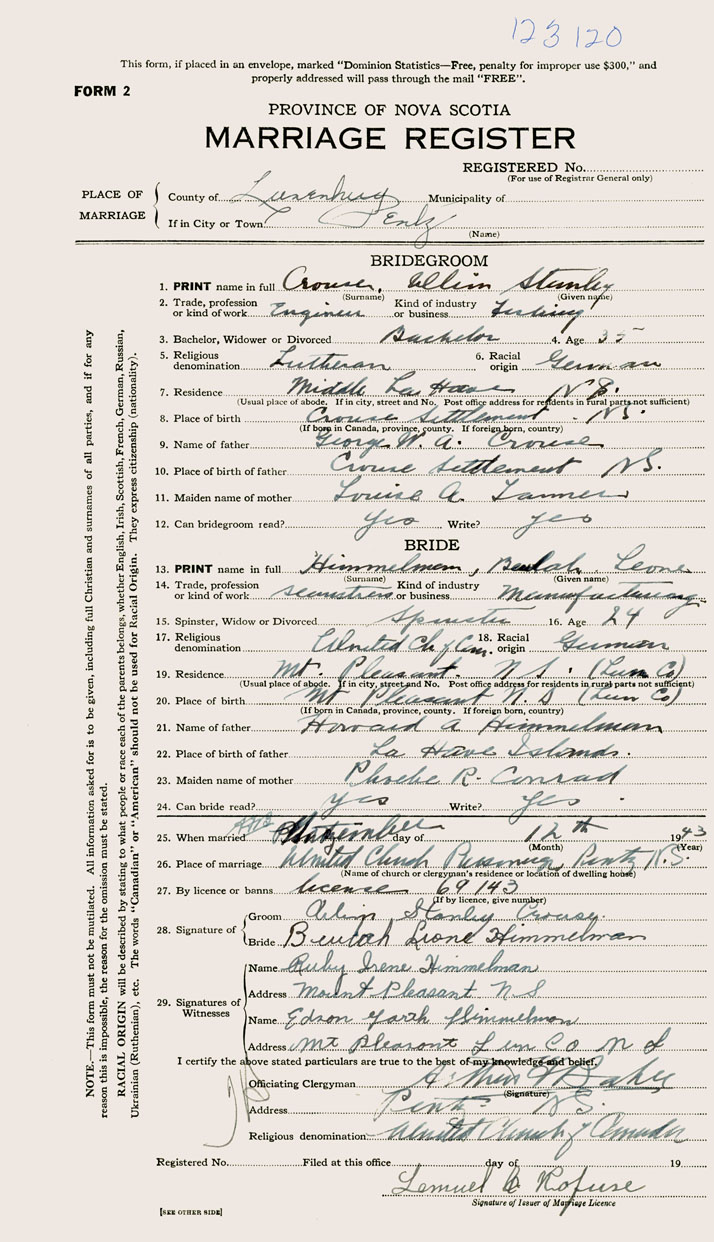 123120
This form, if placed in an envelope, marked "Dominion Statistics—Free, penalty for improper use $300," and
properly addressed will pass through the mail "FREE".
FORM 2
PROVINCE OF NOVA SCOTIA
MARRIAGE REGISTER
REGISTERED No.
(For use of Registrar General only)
PLACE OF MARRIAGE
County of Lunenburg Municipality of
If in City or Town Pentz
(Name)
BRIDEGROOM
1. PRINT name in full Crouse, Stanley
(Surname) (Given name)
2. Trade, profession or kind of work Engineer Kind of industry or business Fishing
3. Bachelor, Widower or Divorced Bachelor 4. Age 35
5. Religious denomination Lutheran 6. Racial origin German
7. Residence Middle La Have N.S.
(Usual place of abode. If in city, street and No. Post office address for residents in rural parts not sufficient)
8. Place of birth Crouse Settlement NS.
(If born in Canada, province, county. If foreign born, country)
9. Name of father George W. A. Crouse
10. Place of birth of father Crouse Settlement NS.
11. Maiden name of mother Louise A. Tanner
12. Can bridegroom read? yes Write? yes
BRIDE
13. PRINT name in full Himmelman, Beulah Leone
(Surname) (Given name)
14. Trade, profession or kind of work seamstress Kind of industry or business Manufacturing
15. Spinster, Widow or Divorced Spinster 16. Age 24
17. Religious denomination United Ch of Can. 18. Racial origin German
19. Residence Mt. Pleasant. N.S. (Lun Co)
(Usual place of abode. If in city, street and No. Post office address for residents in rural parts not sufficient)
20. Place of birth Mt Pleasant N.S (Lun Co)
(If born in Canada, province, county. If foreign born, country)
21. Name of father Howard A Himmelman
22. Place of birth of father La Have Islands.
23. Maiden name of mother Phoebe R. Conrad
24. Can bride read? yes Write? yes
25. When married day of 12th 1943
(Month) (Year)
26. Place of marriage United Church Parsonage, Pentz N.S.
(Name of church or clergyman's residence or location of dwelling house)
27. By licence or banns license 69143
(If by licence, give number)
28. Signature of
Groom Stanley Crouse.
Bride Beulah Leone Himmelman
29. Signatures of Witnesses
Name Ruby Irene Himmelman
Address Mount Pleasant N S
Name Edson Garth Himmelman
Address Mt Pleasant Lun Co N S
I certify the above stated particulars are true to the best of my knowledge and belief.
Officiating Clergyman
(Signature)
Address Pentz NS.
Religious denomination United Church of Canada
Registered No. Filed at this office day of 19
Lemuel Rofuse
Signature of Issuer of Marriage Licence
[SEE OTHER SIDE]
NOTE.—This form must not be mutilated. All information asked for is to be given, including full Christian and surnames of all parties, and if for any
reason this is impossible, the reason for the omission must be stated.
RACIAL ORIGIN will be described by stating to what people or race each of the parents belongs, whether English, Irish, Scottish, French, German, Russian,
Ukrainian (Ruthenian), etc. The words "Canadian" or "American" should not be used for Racial Origin. They express citizenship (nationality).